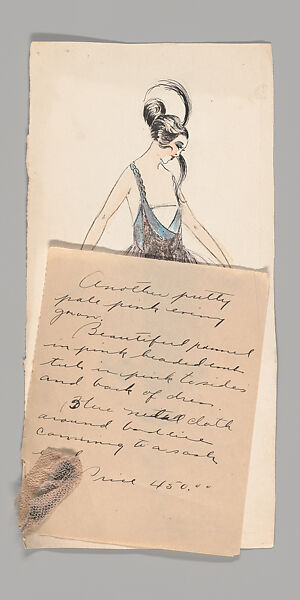 Another pretty
pale pink evening
gown.
Beautiful panel
in pink beaded emb
tub in pink to sides
and back of dress
Blue metal cloth
around bodice
comming to a sash
Price 450.00